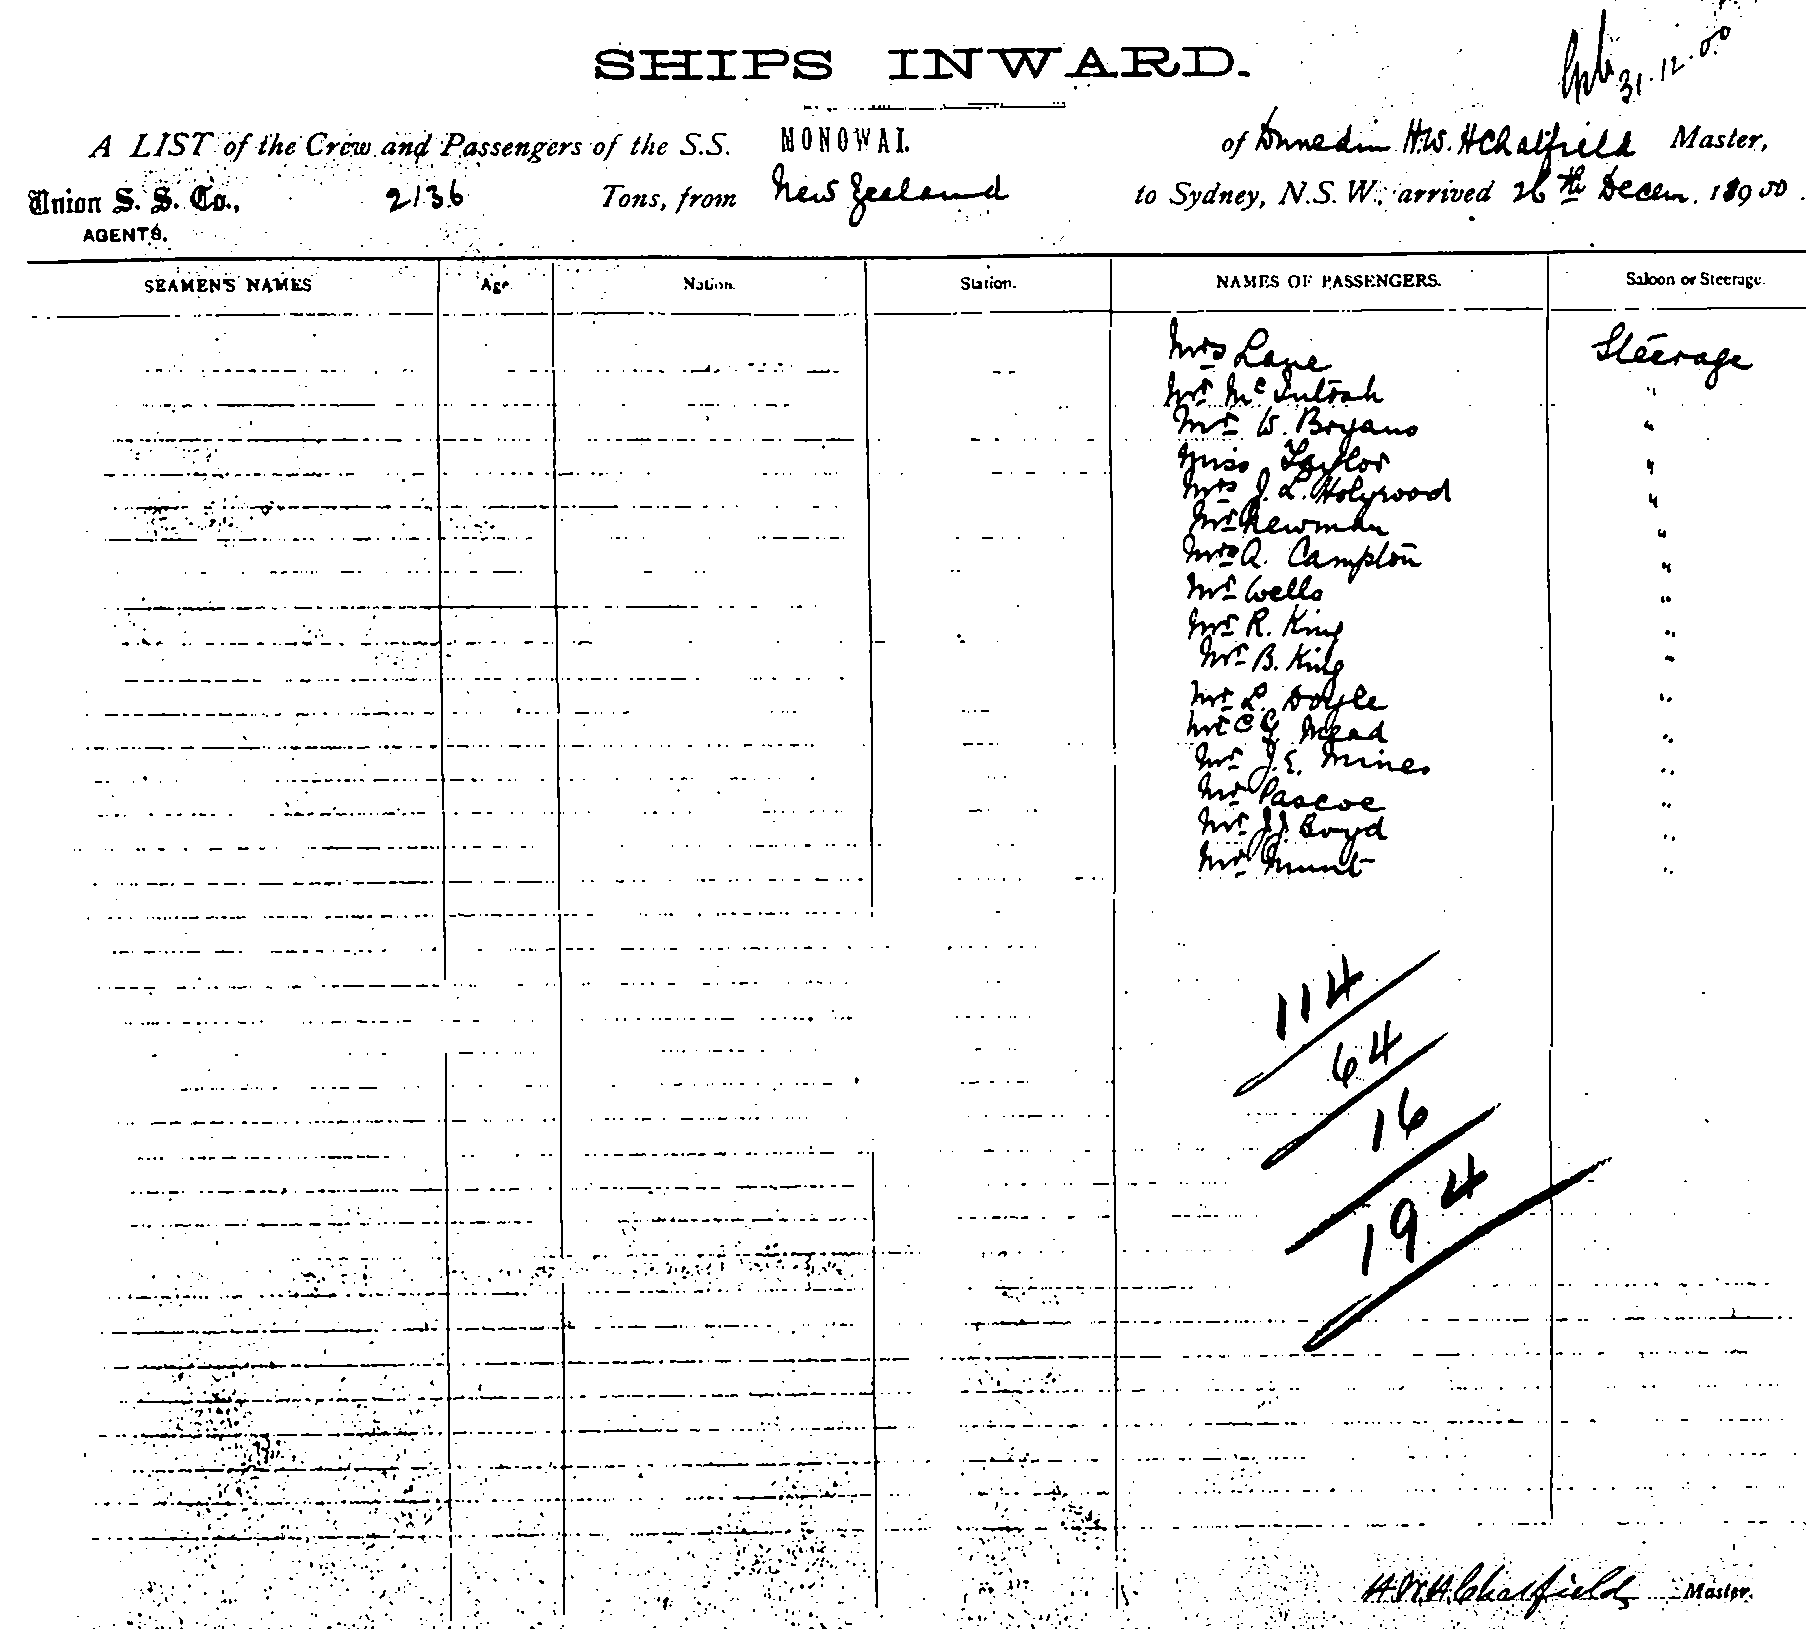 31.12.00
SHIPS INWARD.
A LIST of the Crew and Passengers of the S.S. MONOWAI. of Dunedin H.W.H Chatfield Master,
Union S. S. Co., 2136 Tons, from New Zealand to Sydney, N.S.W., arrived 26th Decem. 18900.
AGENTS.
SEAMEN'S NAMES Age Nation. Station. NAMES OF PASSENGERS. Saloon or Steerage.
Mrs Lane Steerage
Mr McIntosh "
Mr W. Bryans "
Miss Taylor "
Mrs J. L. Holywood "
Mr Newman "
Mrs A. Campton "
Mr Wells "
Mr R. King "
Mr B. King "
Mr L. Doyle "
Mr C G Mead "
Mr J. E. Mines "
Mr Pascoe "
Mr J J. Boyd "
Mr Munt "
114
64
16
194
H.W.H. Chatfield Master.